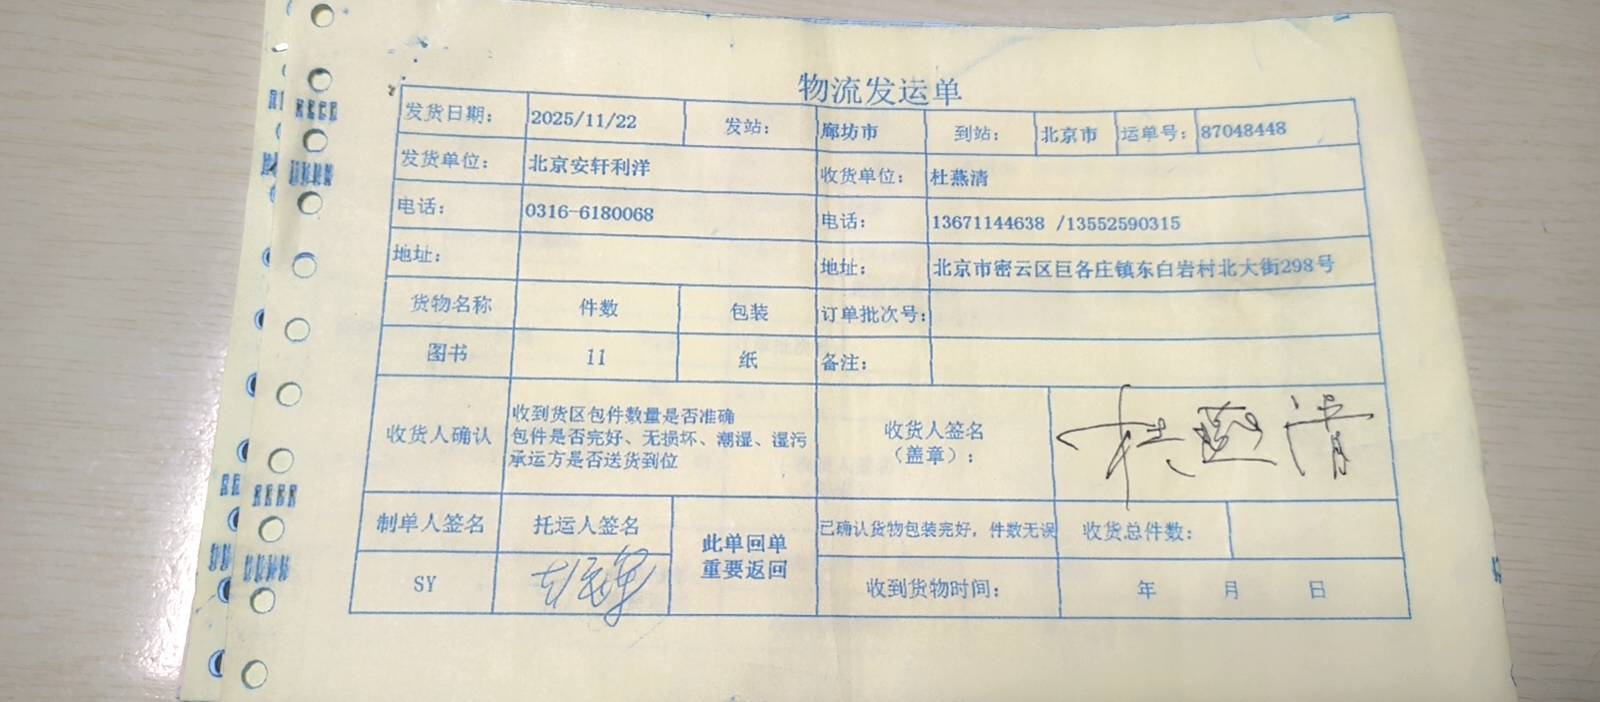 物流发运单
发货日期： 2025/11/22 发站： 廊坊市 到站： 北京市 运单号： 87048448
发货单位： 北京安轩利洋 收货单位： 杜燕清
电话： 0316-6180068 电话： 13671144638 /13552590315
地址： 地址： 北京市密云区巨各庄镇东白岩村北大街298号
货物名称 件数 包装 订单批次号：
图书 11 纸 备注：
收货人确认 收到货区包件数量是否准确
包件是否完好、无损坏、潮湿、湿污
承运方是否送货到位
收货人签名
（盖章）：
杜燕清
制单人签名 托运人签名 此单回单
重要返回
已确认货物包装完好，件数无误 收货总件数：
SY 收到货物时间： 年 月 日